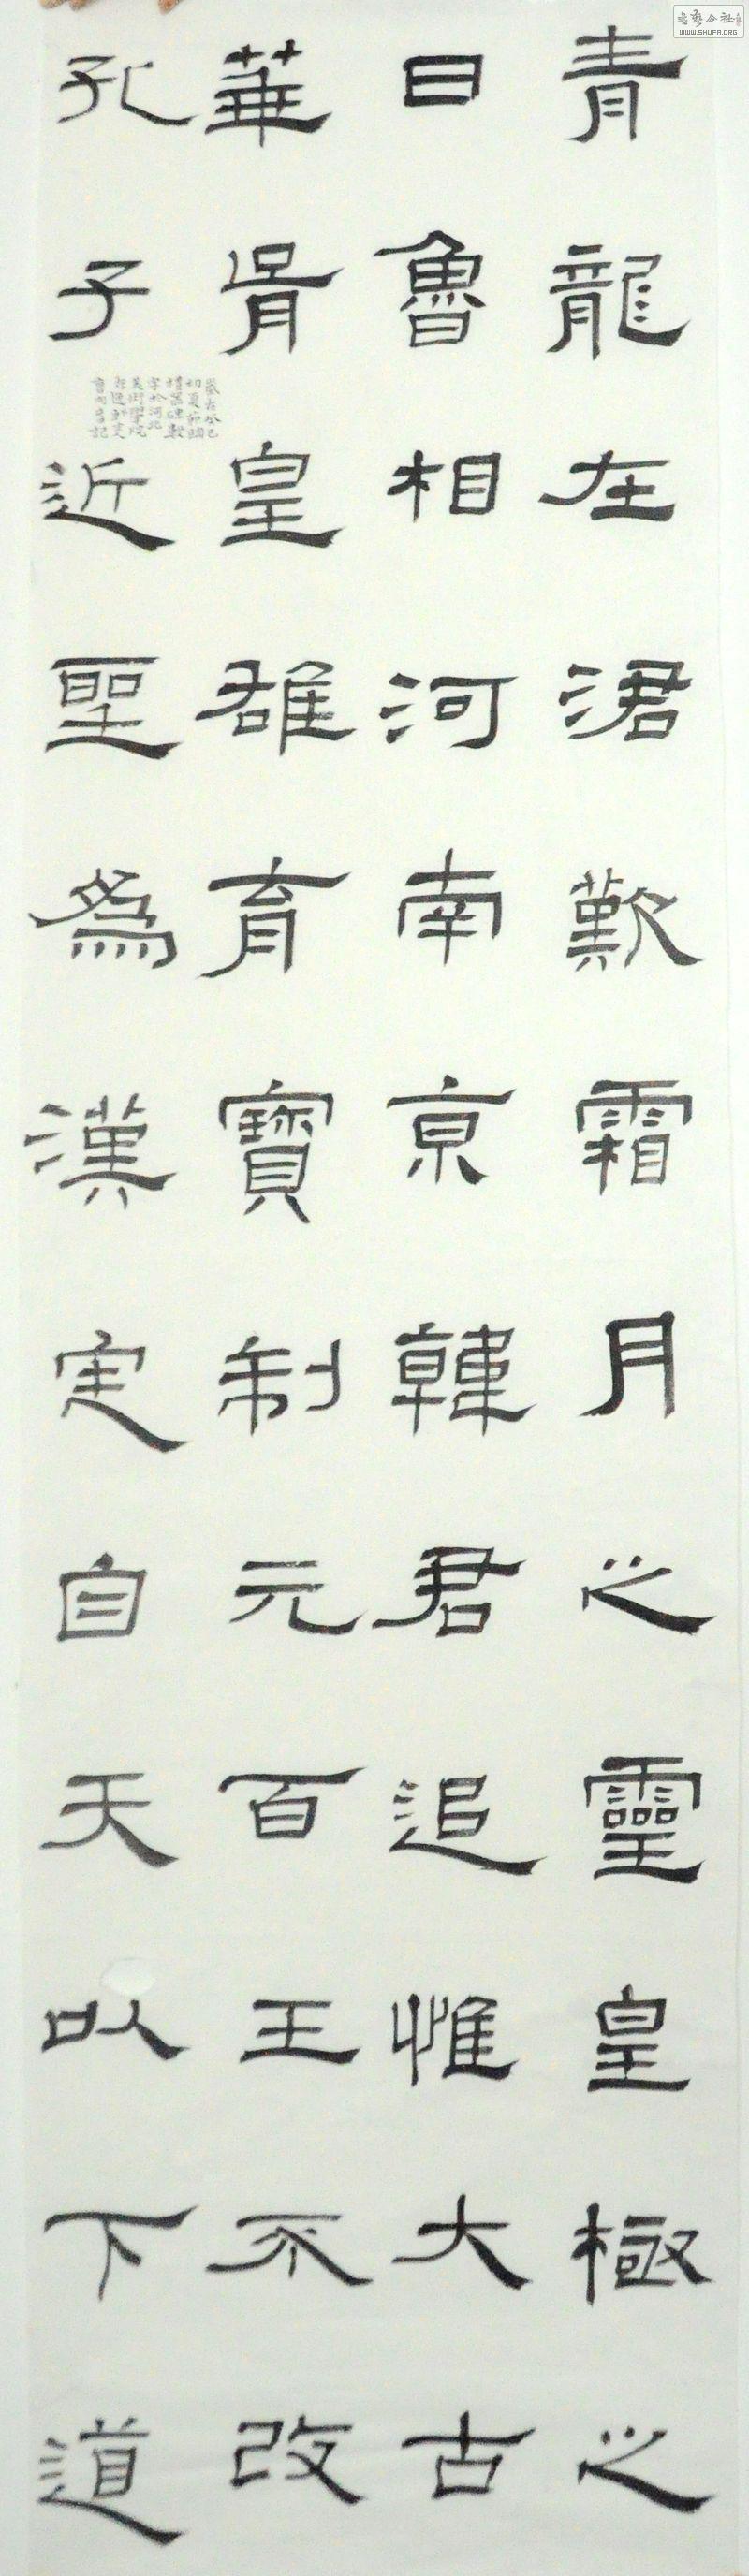 青龍在涒歎霜月之靈皇極之
日魯相河南京韓君追惟大古
華胥皇雄育寶制元百王不改
孔子近聖為漢定自天以下道
WWW.SHUFA.ORG